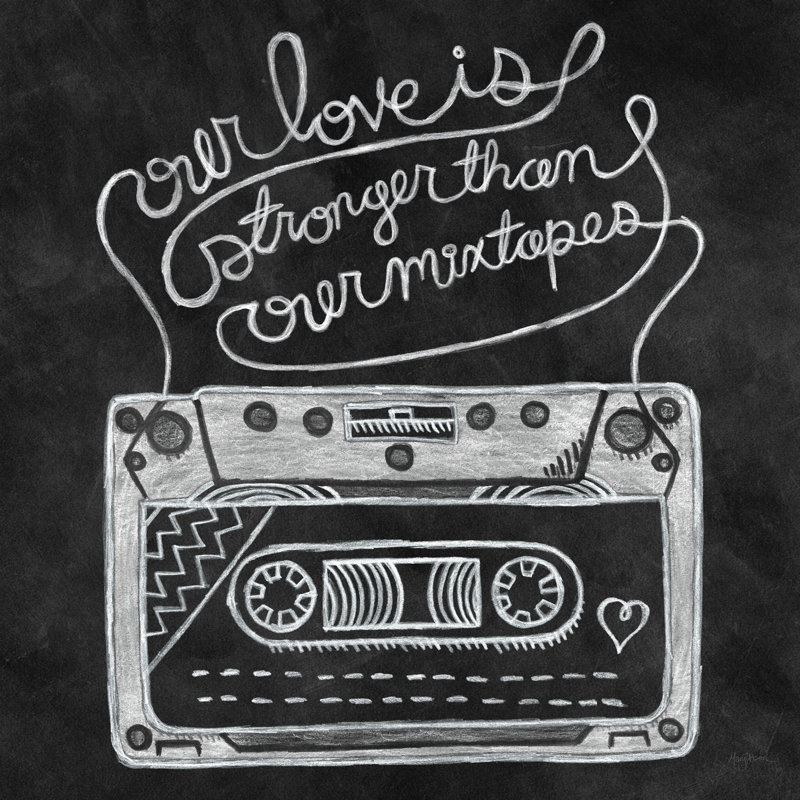 our love is
stronger than
our mixtapes